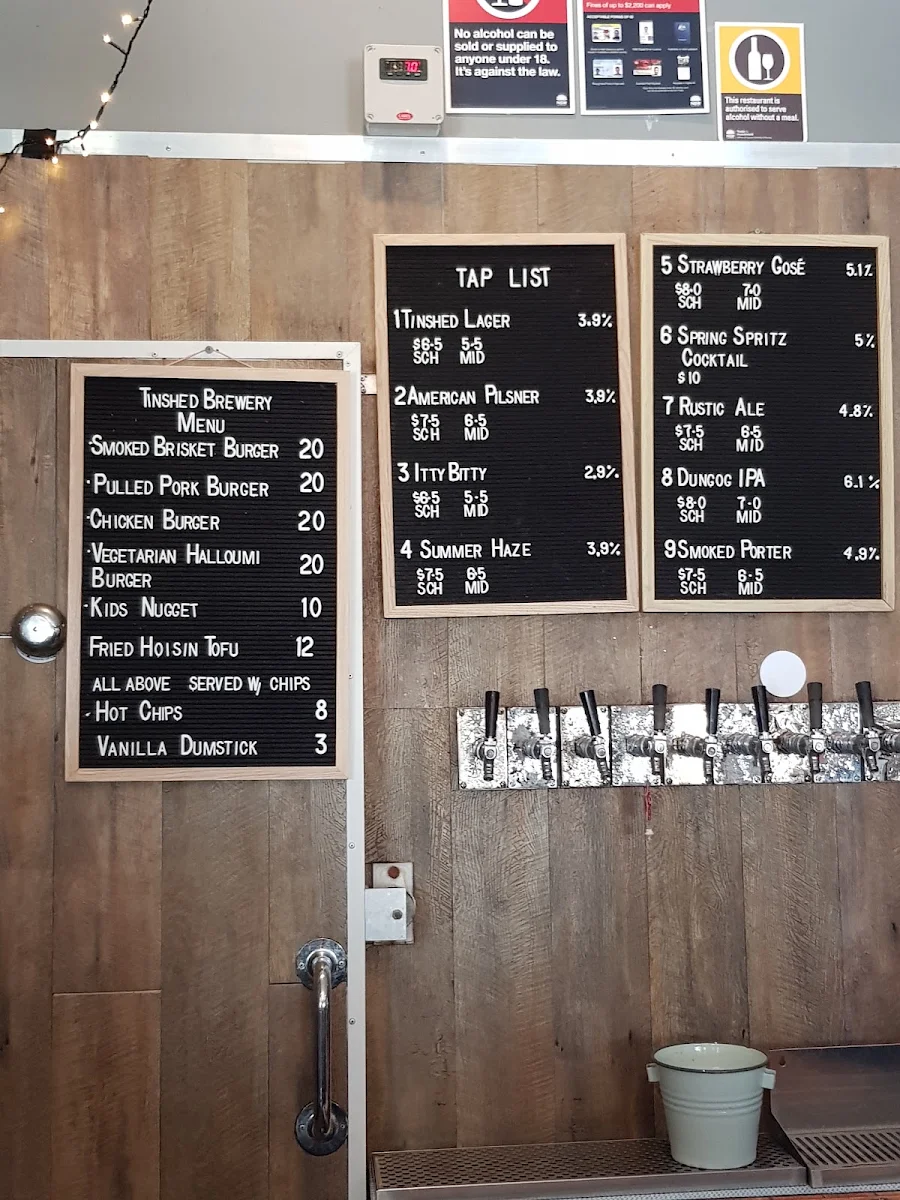 No alcohol can be
sold or supplied to
anyone under 18.
It's against the law.
Fines of up to $2,200 can apply
This restaurant is
authorised to serve
alcohol without a meal.
7.0
TAP LIST
1 TINSHED LAGER 3.9%
$6-5 5-5
SCH MID
2 AMERICAN PILSNER 3.9%
$7-5 6-5
SCH MID
3 ITTY BITTY 2.9%
$6-5 5-5
SCH MID
4 SUMMER HAZE 3.9%
$7-5 6-5
SCH MID
5 STRAWBERRY GOSÉ 5.1%
$8-0 7-0
SCH MID
6 SPRING SPRITZ 5%
COCKTAIL
$10
7 RUSTIC ALE 4.8%
$7-5 6-5
SCH MID
8 DUNGOG IPA 6.1%
$8-0 7-0
SCH MID
9 SMOKED PORTER 4.9%
$7-5 6-5
SCH MID
TINSHED BREWERY
MENU
·SMOKED BRISKET BURGER 20
·PULLED PORK BURGER 20
·CHICKEN BURGER 20
·VEGETARIAN HALLOUMI
BURGER 20
·KIDS NUGGET 10
FRIED HOISIN TOFU 12
ALL ABOVE SERVED W, CHIPS
·HOT CHIPS 8
VANILLA DUMSTICK 3